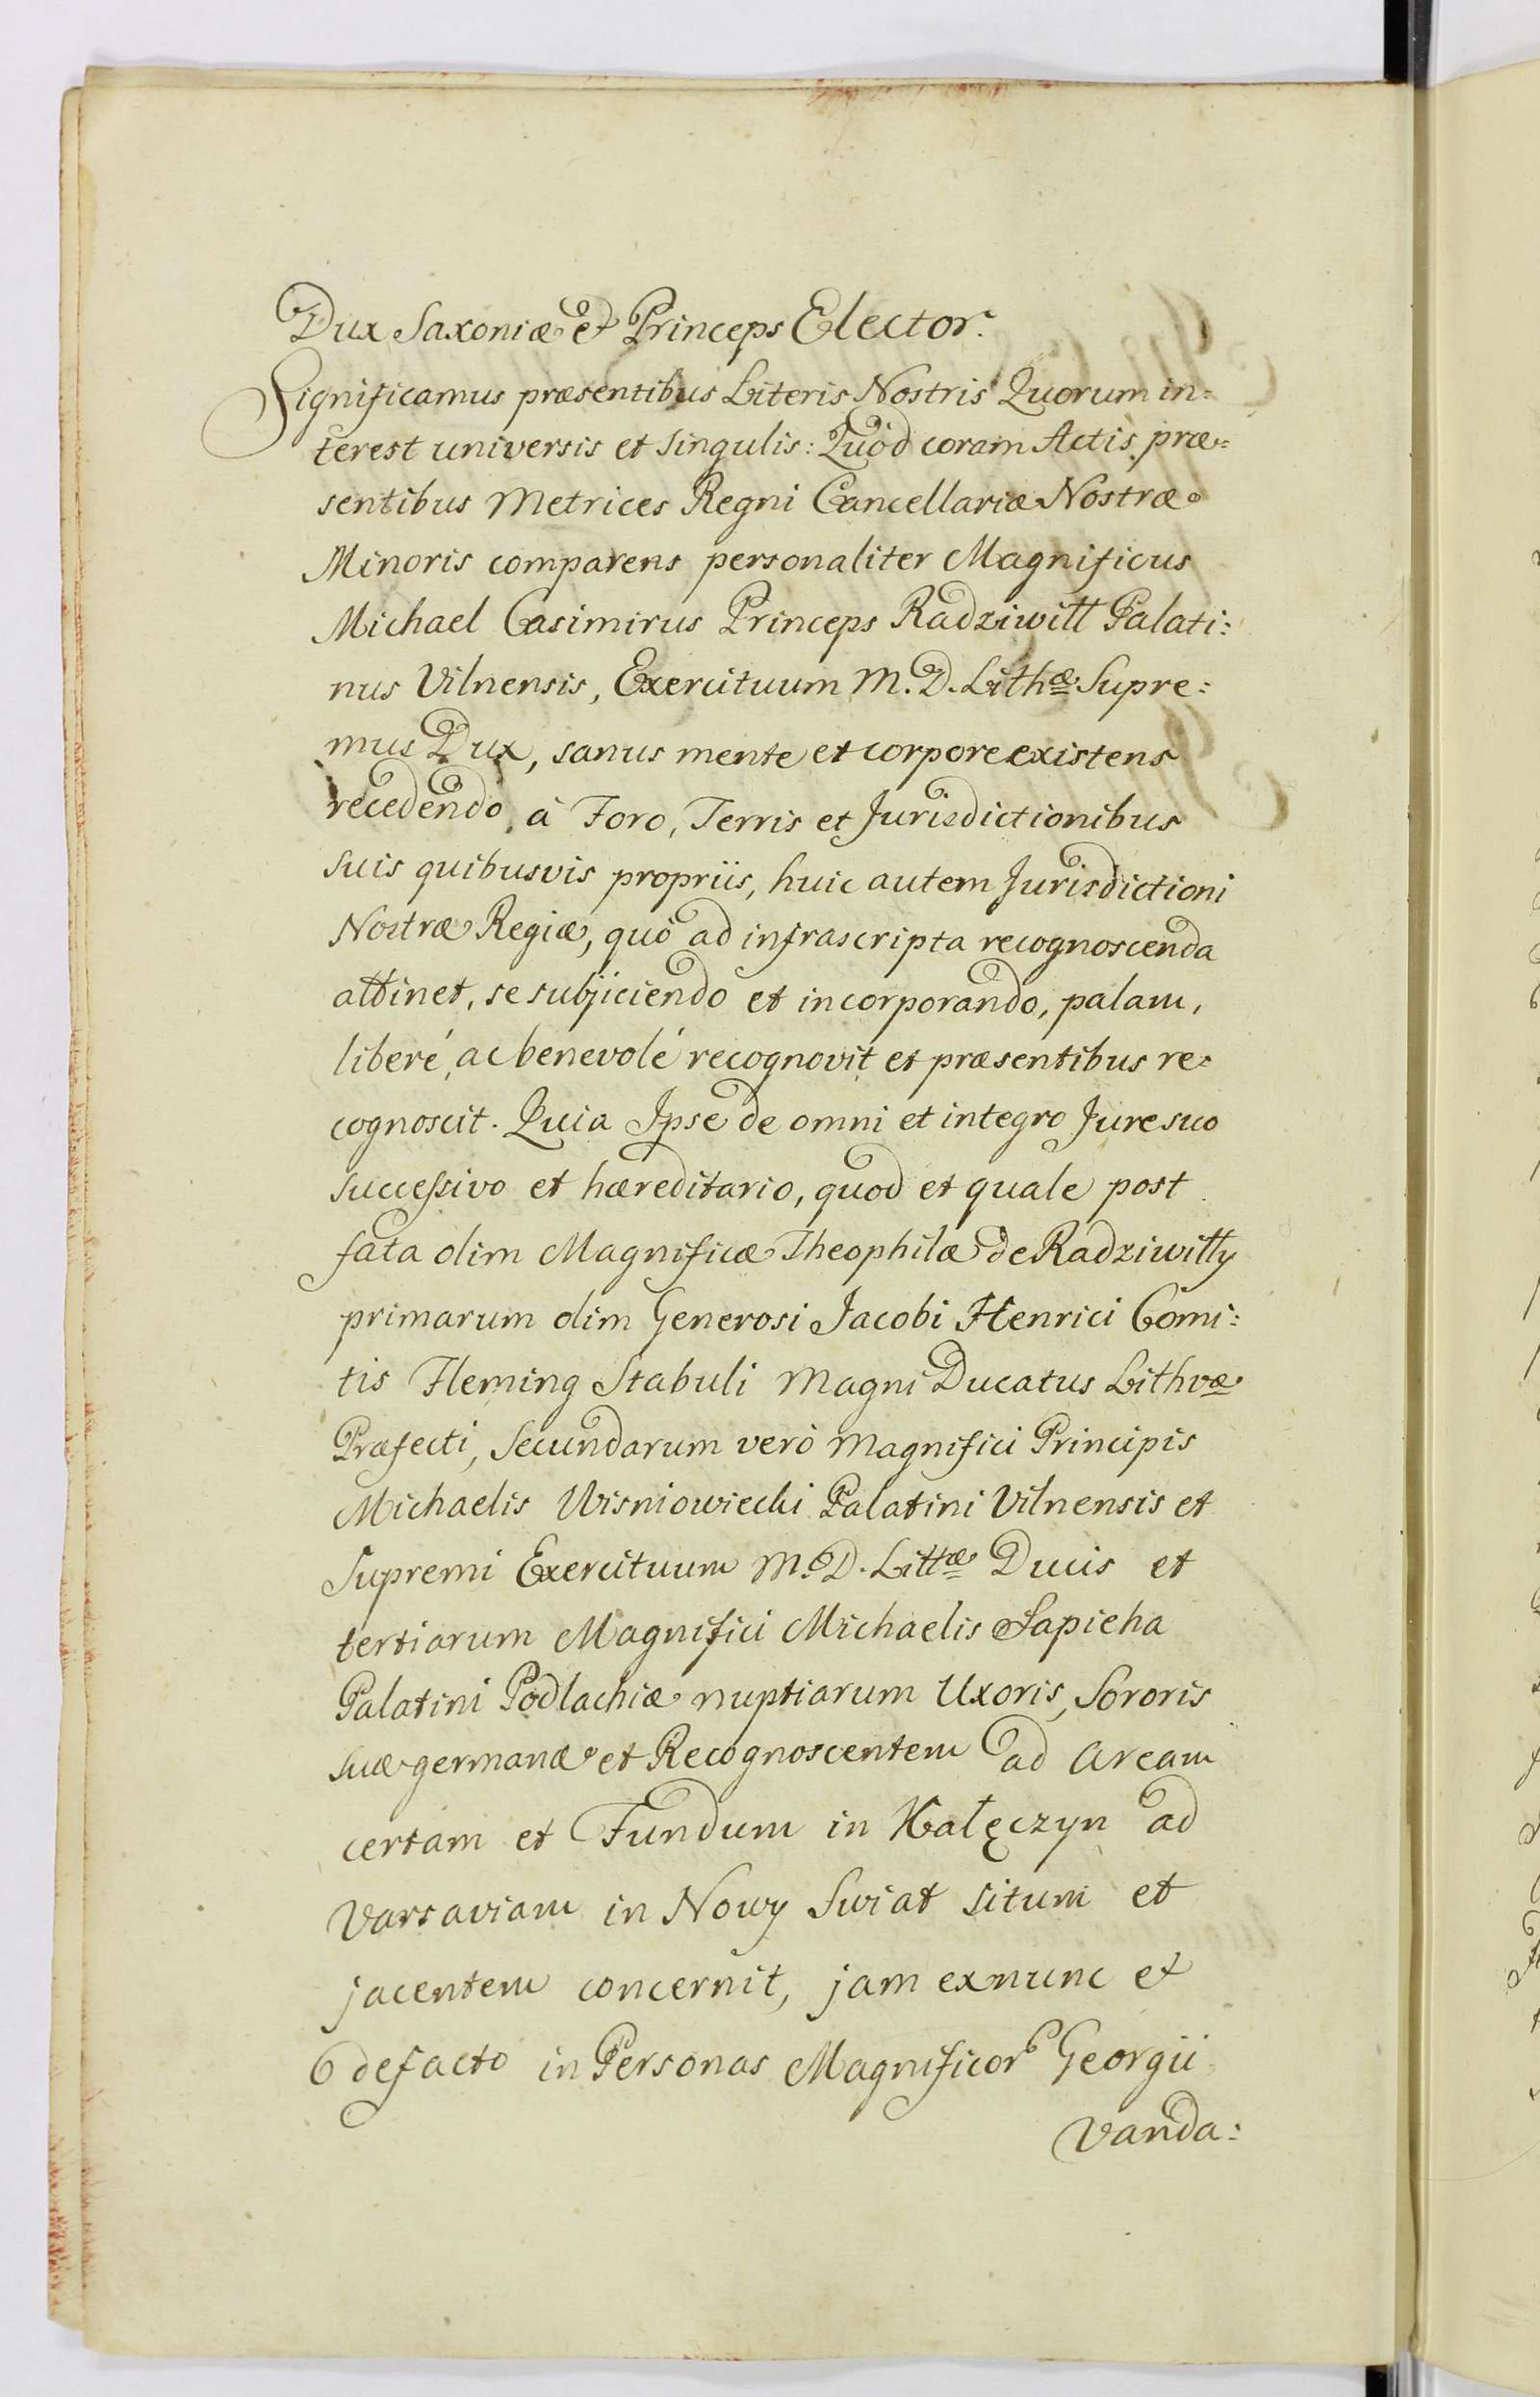 Dux Saxoniæ et Princeps Elector.
Significamus præsentibus Literis Nostris Quorum in=
terest universis et singulis: Quòd coram Actis præ=
sentibus Metrices Regni Cancellariæ Nostræ
Minoris comparens personaliter Magnificus
Michael Casimirus Princeps Radziwiłł Palati:
nus Vilnensis, Exercituum M. D. Lithæ Supre:
mus Dux, sanus mente et corpore existens
recedendo, à Foro, Terris et Jurisdictionibus
suis quibusvis propriis, huic autem Jurisdictioni
Nostræ Regiæ, quò ad infrascripta recognoscenda
attinet, se subjiciendo et incorporando, palam,
liberé, ac benevolé recognovit et præsentibus re=
cognoscit. Quia Ipse de omni et integro Jure suo
successivo et hæreditario, quod et quale post
fata olim Magnificæ Theophilæ de Radziwiłły
primarum olim Generosi Jacobi Henrici Comi:
tis Fleming Stabuli Magni Ducatus Lithvæ
Præfecti, Secundarum verò Magnifici Principis
Michaelis Wisniowiecki Palatini Vilnensis et
Supremi Exercituum M. D. Littæ Ducis et
tertiarum Magnifici Michaelis Sapieha
Palatini Podlachiæ nuptiarum Uxoris, Sororis
suæ germanæ et Recognoscentem ad Aream
certam et Fundum in Kałęczyn ad
Varsaviam in Nowy Swiat situm et
jacentem concernit, jam exnunc et
defacto in Personas Magnificor Georgii
Vanda: